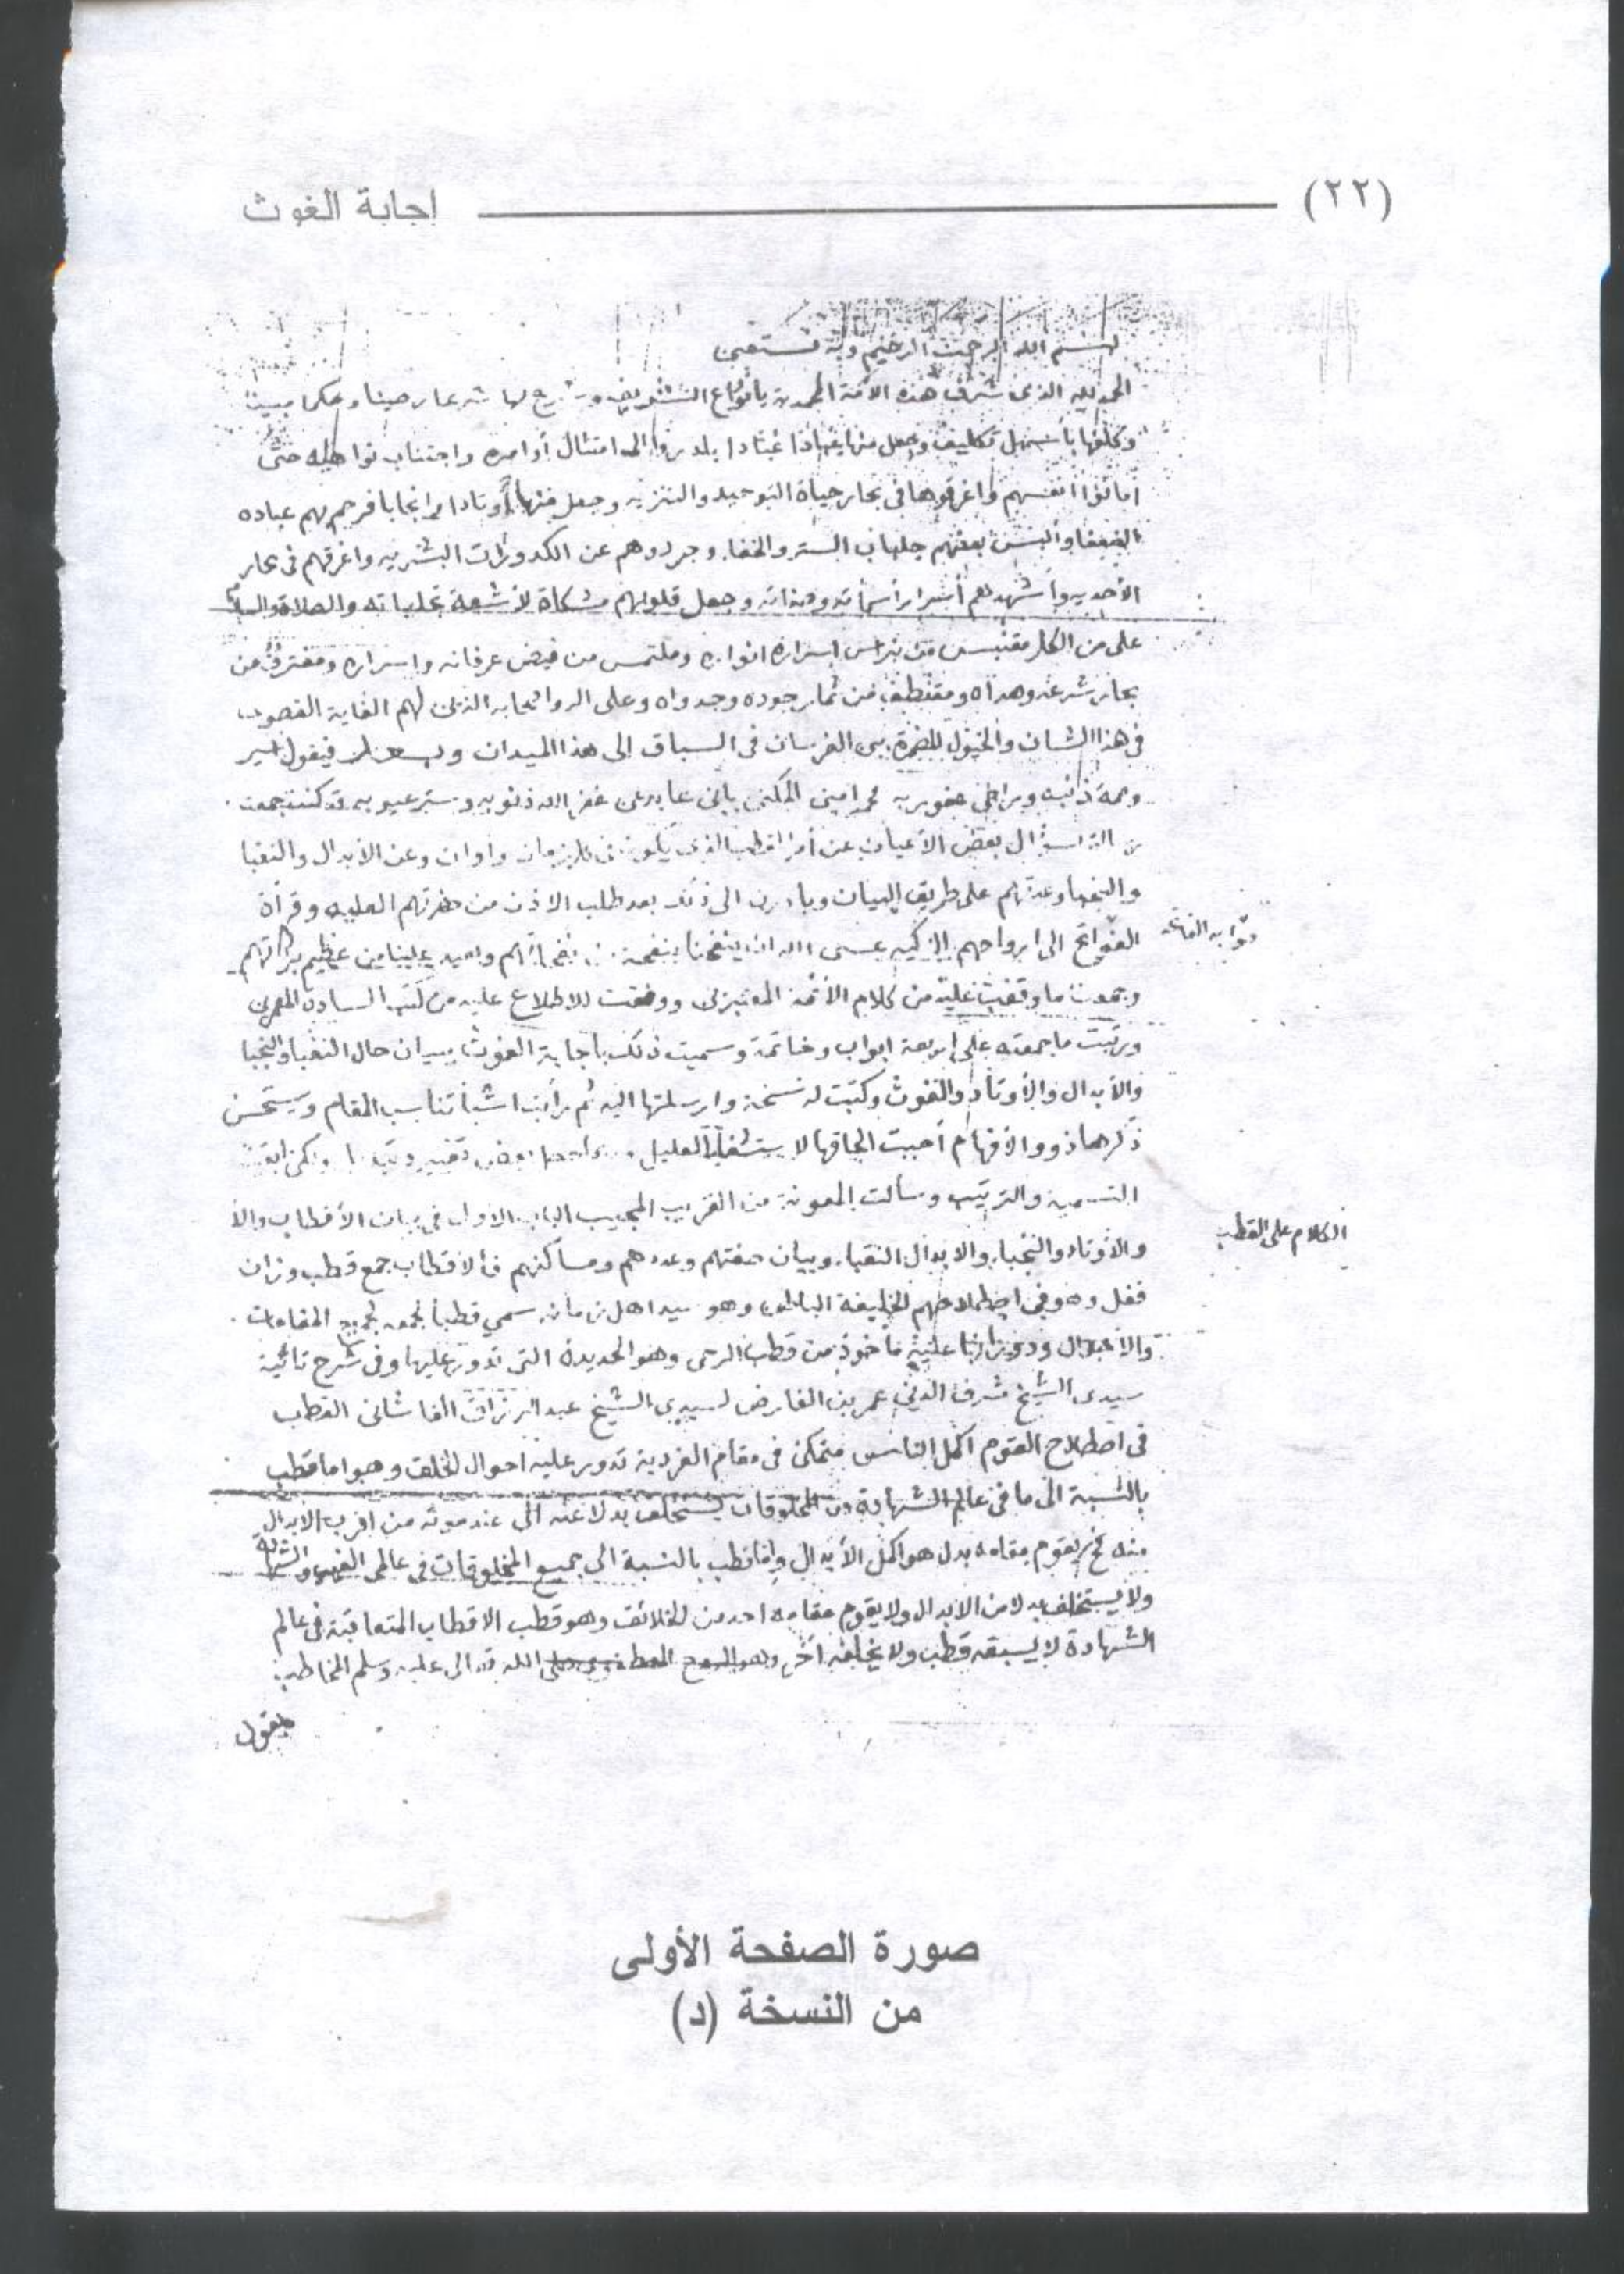 (٢٢) اجابة الغوث
بسم الله الرحمن الرحيم وبه نستعين
الحمد لله الذى شرف هذه الأمة المحمدية بأنواع التشريف وشرع لها شرعا رصينا وحكما مبينا
وكلفها بأسهل تكليف وجعل منها عبادا عبادا بادروا الى امتثال أوامره واجتناب نواهيه حتى
أماتوا انفسهم واغرقوها فى بحار حياة التوحيد والتنزيه وجعل منها أوتادا وانجابا فرحم بهم عباده
الضعفا وألبس بعضهم جلباب الستر والخفا وجردهم عن الكدورات البشريه واغرقهم فى بحار
الأحديه وأشهدهم أسرار أسمائه وصفاته وجعل قلوبهم مشكاة لأشعة تجلياته والصلاة والسلام
على من الكل مقتبس من نبراس اسراره انواره وملتمس من فيض عرفانه واسراره ومغترف من
بحار شرعه وهداه ومقتطف من ثمار جوده وجدواه وعلى اله واصحابه الذين لهم الغاية القصوى
فى هذا الشان والخيول المضمرة بين الفرسان فى السباق الى هذا الميدان وبعد فيقول اسير
وصمة ذنبه وراجى عفو ربه محمد امين المكنى بابن عابدين غفر الله ذنوبه وستر عيوبه قد كنت جمعت
سؤال بعض الأعيان عن أمر القطب الذى يكون فى كل زمان واوان وعن الأبدال والنقبا
والنجبا وعدتهم على طريق البيان وبادرت الى ذلك بعد طلب الاذن من حضرتهم العليه وقرأة
الفواتح الى ارواحهم الزكيه عسى الله ان ينفحنا بنفحة من نفحاتهم ويعيد علينا من عظيم بركاتهم
وجمعت ما وقفت عليه من كلام الأئمة المعتبرين ووفقت للاطلاع عليه من كتب السادة المعمرين
ورتبت ما جمعته على اربعة ابواب وخاتمة وسميت ذلك باجابة الغوث ببيان حال النقبا والنجبا
والأبدال والأوتاد والغوث وكتبت له نسخة وارسلتها اليه ثم رأيت اشيأ تناسب المقام ويستحسن
ذكرها ذوو الافهام أحببت الحاقها لاستشفاء العليل بعض تغيير ولكن ابقيت
التسمية والترتيب وسألت المعونة من القريب المجيب الباب الاول فى بيان الأقطاب والا
والأوتاد والنجباء والابدال النقباء وبيان صفتهم وعددهم ومساكنهم فالأقطاب جمع قطب وزان
قفل وهو فى اصطلاحهم الخليفة الباطن وهو سيد اهل زمانه سمى قطبا لجمعه لجميع المقامات
والاحوال ودورانها عليه مأخوذ من قطب الرحى وهو الحديدة التى تدور عليها وفى شرح تائية
سيدى الشيخ شرف الدين عمر بن الفارض لسيدى الشيخ عبد الرزاق القاشانى القطب
فى اصطلاح القوم اكمل انسان متمكن فى مقام الفردية تدور عليه احوال الخلق وهو اما قطب
بالنسبة الى ما فى عالم الشهادة من المخلوقات يستخلف بدلا عنه الى عند موته من اقرب الابدال
منه فح يقوم مقامه بدل هو اكمل الأبدال واما قطب بالنسبة الى جميع المخلوقات فى عالمى الغيب والشهادة
ولا يستخلف بدلا من الابدال ولا يقوم مقامه احد من الخلائق وهو قطب الاقطاب المتعاقبة فى عالم
الشهادة لا يسبقه قطب ولا يخلفه آخر وهو الروح المصطفوى صلى الله تعالى عليه وسلم المخاطب
بقول
الكلام على القطب
صورة الصفحة الأولى
من النسخة (د)